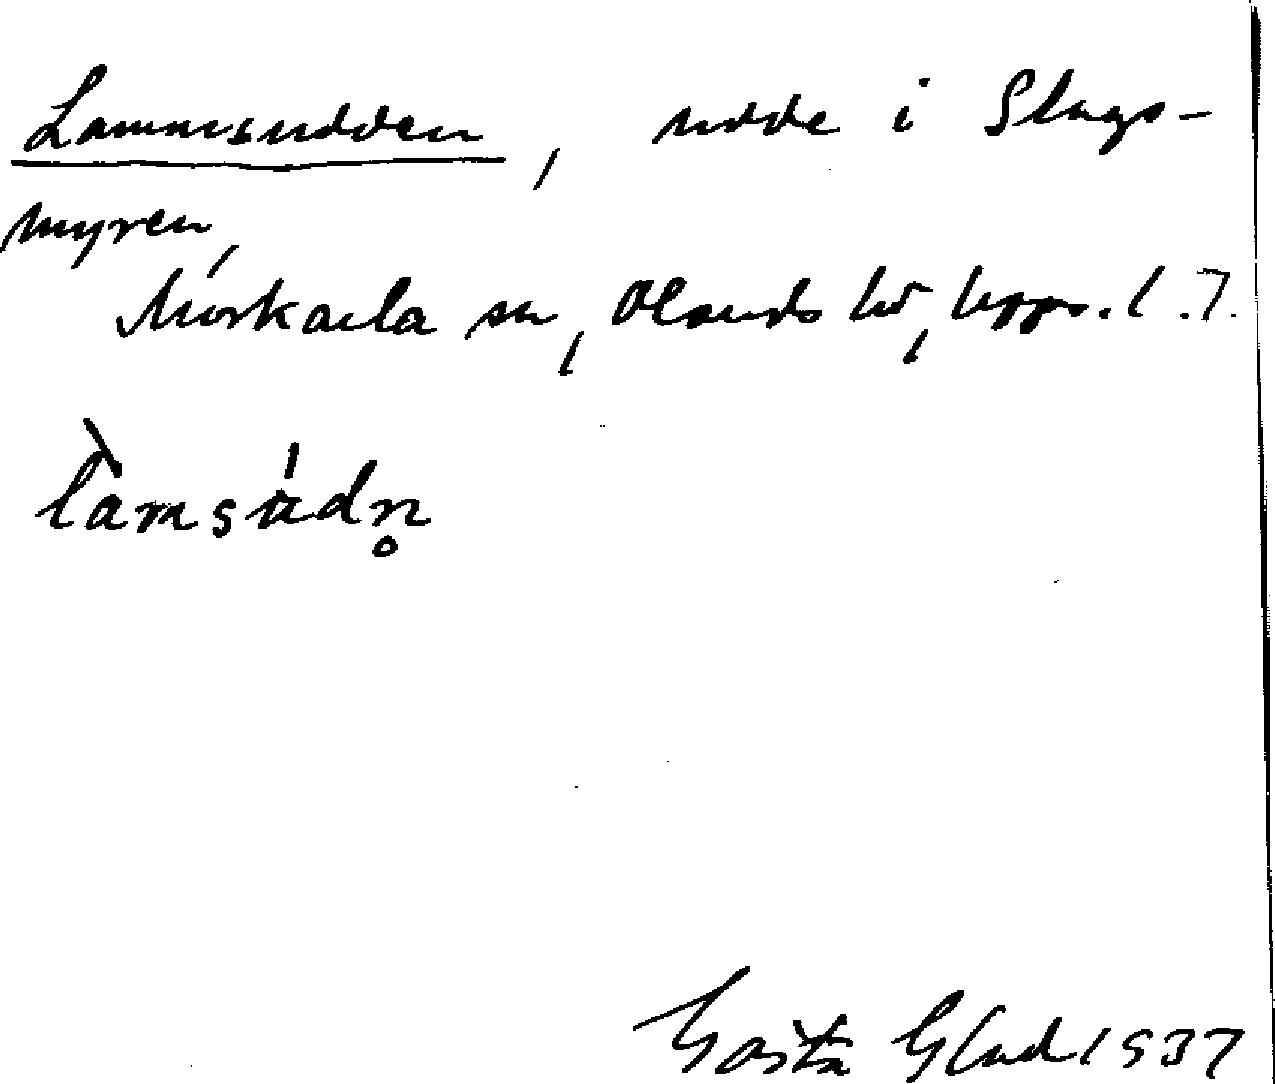 Lammsudden, udde i Slags-
myren,
Morkarla sn, Olands hd, Upps. l.
lamsudn̥
Gösta Glad 1937